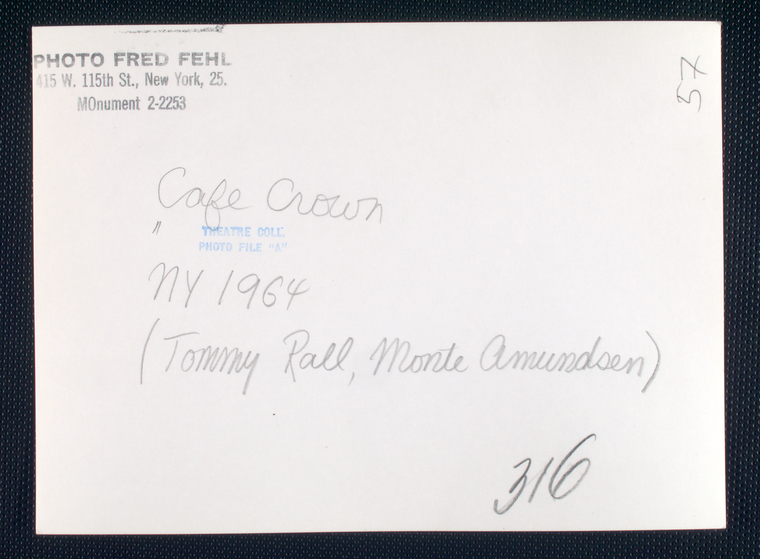 PHOTO FRED FEHL
415 W. 115th St., New York, 25.
MOnument 2-2253
57
Cafe Crown
"
THEATRE COLL.
PHOTO FILE "A"
NY 1964
(Tommy Rall, Monte Amundsen)
316